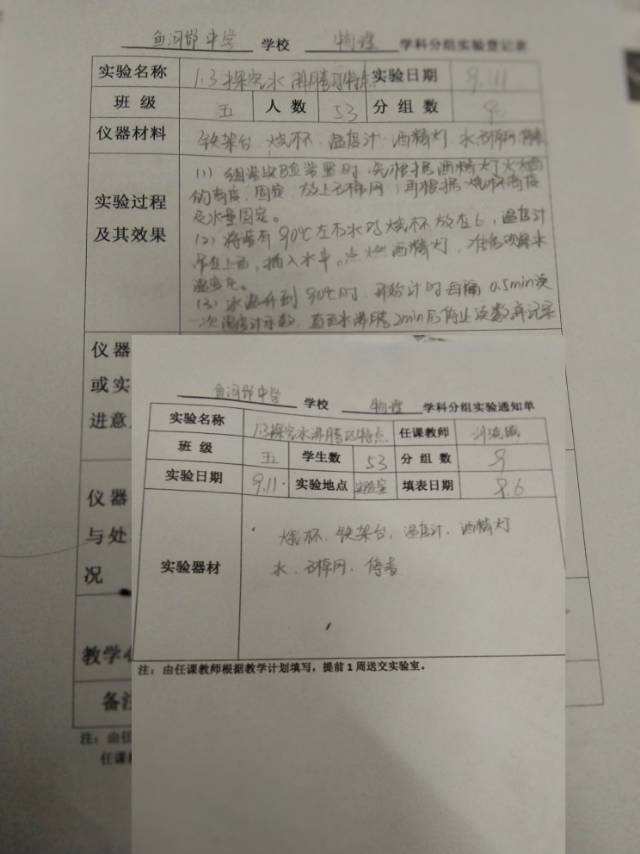 鱼河堡中学 学校 物理 学科分组实验登记表
实验名称 1.3探究水沸腾时特点 实验日期 9.11
班级 五 人数 53 分组数 9
仪器材料 铁架台 烧杯 温度计 酒精灯 水 石棉网
(1) 组装实验装置时,先根据酒精灯火焰
实验过程 的高度,固定 放上石棉网,再根据烧杯高度
及水量固定。
及其效果 (2) 将装有90℃左右水的烧杯放在上,温度计
吊在上面,插入水中。点燃酒精灯,
温度变化。
(3) 水温升到90℃时 开始计时每隔0.5min
一次温度计示数,直至水沸腾2min后停止读数并记录
仪器
或实
进意
仪器
与处
况
教学
备注
注:由任
任课
鱼河堡中学 学校 物理 学科分组实验通知单
实验名称 1.3探究水沸腾时特点 任课教师
班级 五 学生数 53 分组数 9
实验日期 9.11. 实验地点 实验室 填表日期 9.6
烧杯、铁架台、温度计、酒精灯
实验器材 水、石棉网、
注:由任课教师根据教学计划填写,提前1周送交实验室。